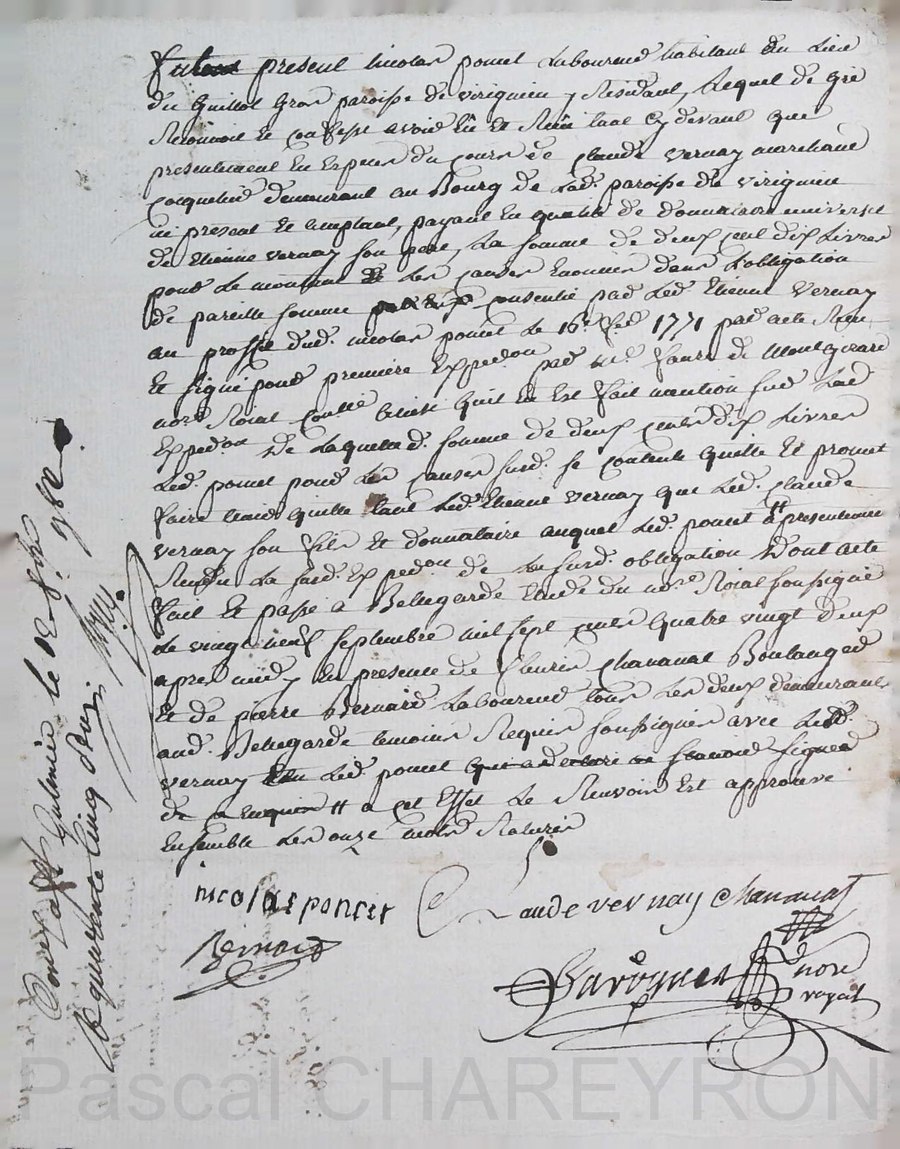 fut present nicolas poncet laboureur habitant du lieu
du guillot gros paroisse de viriguieu y Residant, lequel de gré
Reconnoit et confesse avoir Eu et Reçu tant cy devant que
presentement En Especes du cours de claude vernay marchand
coquetier demeurant au Bourg de lad. paroisse de viriguieu
ici present et acceptant, payant En qualité de donnataire universel
de Etienne vernay son pere, La somme de deux cent dix Livres
pour le montant & les causes Enoncées dans L'obligation
de pareille somme consentie par led. Etienne vernay
au proffit dud. nicolas poncet le 16e 1771 par acte Reçu
Et signé pour premiere Expedon par me faure de Montgirard
nore Roial controllé ainsi qu'il en Est fait mention sur lad.
Expedon De laquelle d. somme de deux cents dix Livres
Led. poncet pour les causes susd. se contente quitte Et promet
faire tenir quitte tant led. Etienne vernay que led. claude
vernay son fils Et donnataire auquel led. poncet a presentement
Rendu La susd. Expedon de la susd. obligation Dont acte
fait Et passé a Bellegarde Etude du nore Roial soussigné
Le vingt neuf septembre mil sept cents quatre vingt deux
apres midy En presence de fleurie Chananat Boulanger
Et de pierre Bernard Laboureur tous Les deux demeurants
aud. Bellegarde temoins Requis soussignés avec led.
vernay Led. poncet signer
de ce Enquis a cet Effet Le Renvoi Est approuvé
Ensemble Les onze mots Raturés
nicolas poncet Claude vernay Chananat
Bernard
nore
royal
le 12 8bre 1782
quinze sols